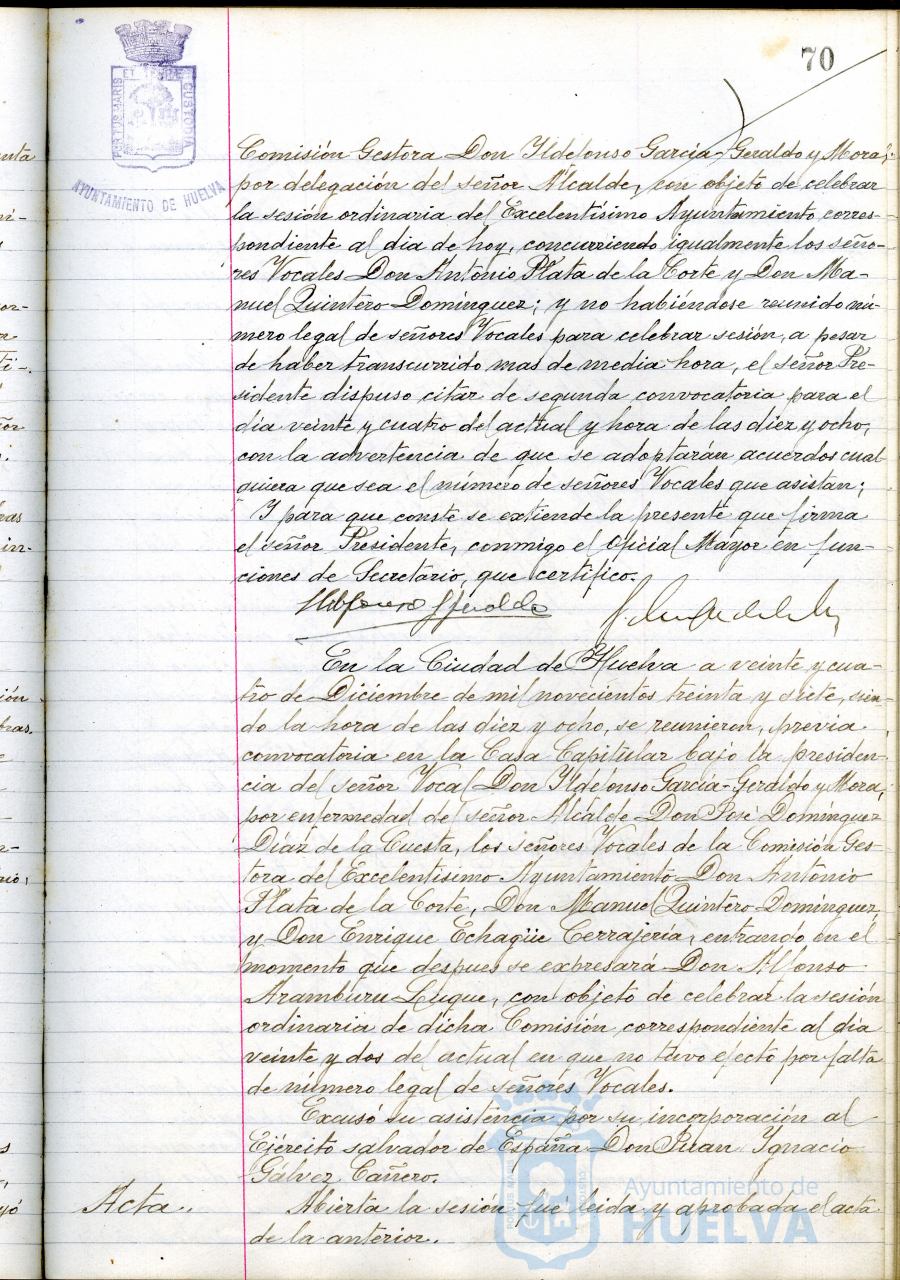 70
PORTUS MARIS ET TERRÆ CUSTODIA
AYUNTAMIENTO DE HUELVA
Comisión Gestora Don Ildefonso García-Geraldo y Mora,
por delegación del señor Alcalde, con objeto de celebrar
la sesión ordinaria del Excelentísimo Ayuntamiento corres-
pondiente al dia de hoy, concurriendo igualmente los seño-
res Vocales Don Antonio Plata de la Corte y Don Ma-
nuel Quintero Domínguez; y no habiéndose reunido nú-
mero legal de señores Vocales para celebrar sesión, a pesar
de haber transcurrido mas de media hora, el señor Pre-
sidente dispuso citar de segunda convocatoria para el
día veinte y cuatro del actual y hora de las diez y ocho,
con la advertencia de que se adoptarán acuerdos cual-
quiera que sea el número de señores Vocales que asistan;
Y para que conste se extiende la presente que firma
el señor Presidente, conmigo el Oficial Mayor en fun-
ciones de Secretario, que certifico.
Ildefonso Geraldo
En la Ciudad de Huelva a veinte y cua-
tro de Diciembre de mil novecientos treinta y siete, sien-
do la hora de las diez y ocho, se reunieron, previa
convocatoria en la Casa Capitular bajo la presiden-
cia del señor Vocal Don Ildefonso García-Geraldo y Mora,
por enfermedad del señor Alcalde Don José Domínguez
Díaz de la Cuesta, los señores Vocales de la Comisión Ges-
tora del Excelentísimo Ayuntamiento Don Antonio
Plata de la Corte, Don Manuel Quintero Domínguez,
y Don Enrique Echagüe Cerrajería, entrando en el
momento que despues se expresará Don Alfonso
Aramburu Luque, con objeto de celebrar la sesión
ordinaria de dicha Comisión, correspondiente al día
veinte y dos del actual en que no tuvo efecto por falta
de número legal de señores Vocales.
Excusó su asistencia por su incorporación al
Ejército salvador de España Don Juan Ignacio
Gálvez Cañero.
Acta.. Abierta la sesión fué leida y aprobada el acta
de la anterior.
Ayuntamiento de
HUELVA